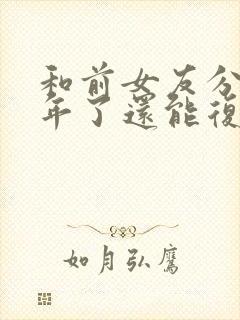 和前女友分
年了還能復
如月弘鷹